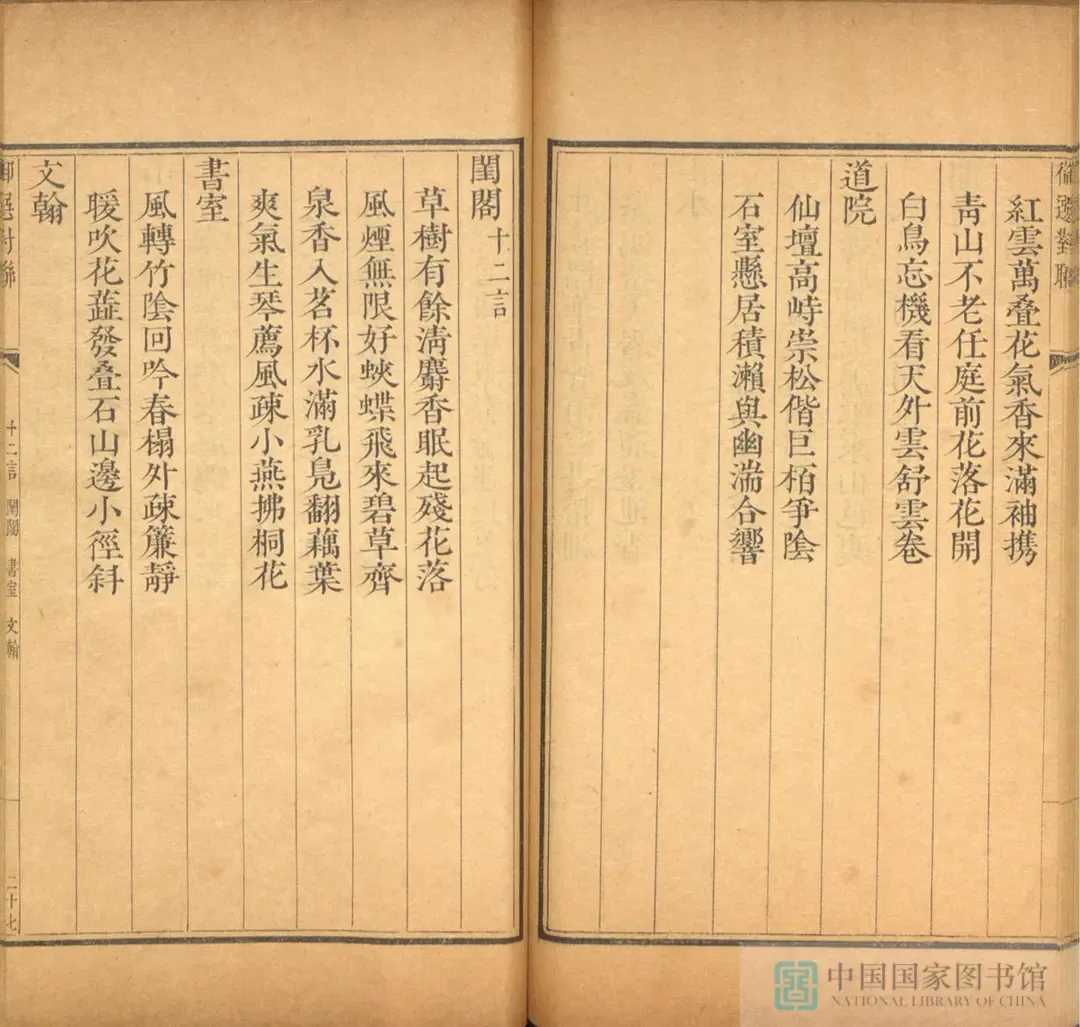 紅雲萬叠花氣香來滿袖携
靑山不老任庭前花落花開
白鳥忘機看天外雲舒雲卷
道院
仙壇高峙崇松偕巨栢爭陰
石室懸居積瀨與幽湍合響
閨閣 十二言
草樹有餘淸麝香眠起殘花落
風煙無限好蛺蝶飛來碧草齊
泉香入茗杯水滿乳鳧翻藕葉
爽氣生琴薦風疎小燕拂桐花
書室
風轉竹陰回吟春榻外疎簾靜
暖吹花蘂發叠石山邊小徑斜
文翰
十二言 閨閣 書室 文翰
二十七
中国国家图书馆
NATIONAL LIBRARY OF CHINA